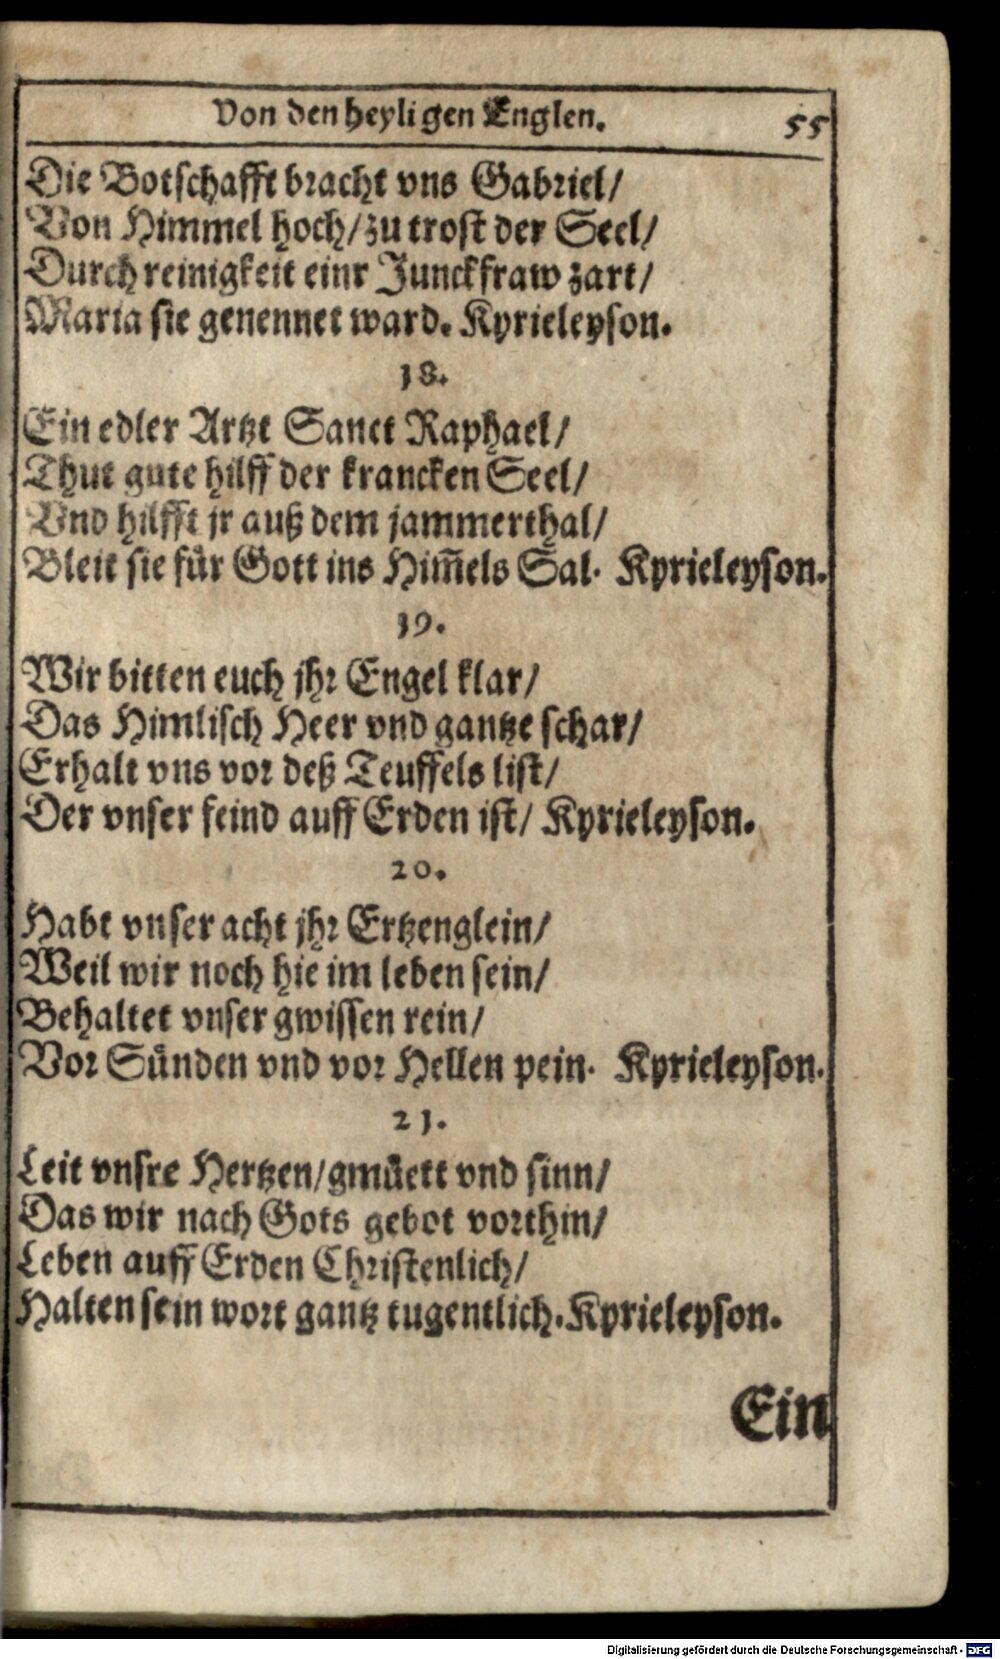 Von den heyligen Englen. 55
Die Botschafft bracht vns Gabriel/
Von Himmel hoch/ zu trost der Seel/
Durch reinigkeit einr Junckfraw zart/
Maria sie genennet ward. Kyrieleyson.
18.
Ein edler Artzt Sanct Raphael/
Thut gute hilff der krancken Seel/
Vnd hilfft jr auß dem jammerthal/
Bleit sie für Gott ins Him̃els Sal. Kyrieleyson.
19.
Wir bitten euch jhr Engel klar/
Das Himlisch Heer vnd gantze schar/
Erhalt vns vor deß Teuffels list/
Der vnser feind auff Erden ist/ Kyrieleyson.
20.
Habt vnser acht jhr Ertzenglein/
Weil wir noch hie im leben sein/
Behaltet vnser gwissen rein/
Vor Sünden vnd vor Hellen pein. Kyrieleyson.
21.
Leit vnsre Hertzen/ gmüett vnd sinn/
Das wir nach Gots gebot vorthin/
Leben auff Erden Christenlich/
Halten sein wort gantz tugentlich. Kyrieleyson.
Ein
Digitalisierung gefördert durch die Deutsche Forschungsgemeinschaft - DFG